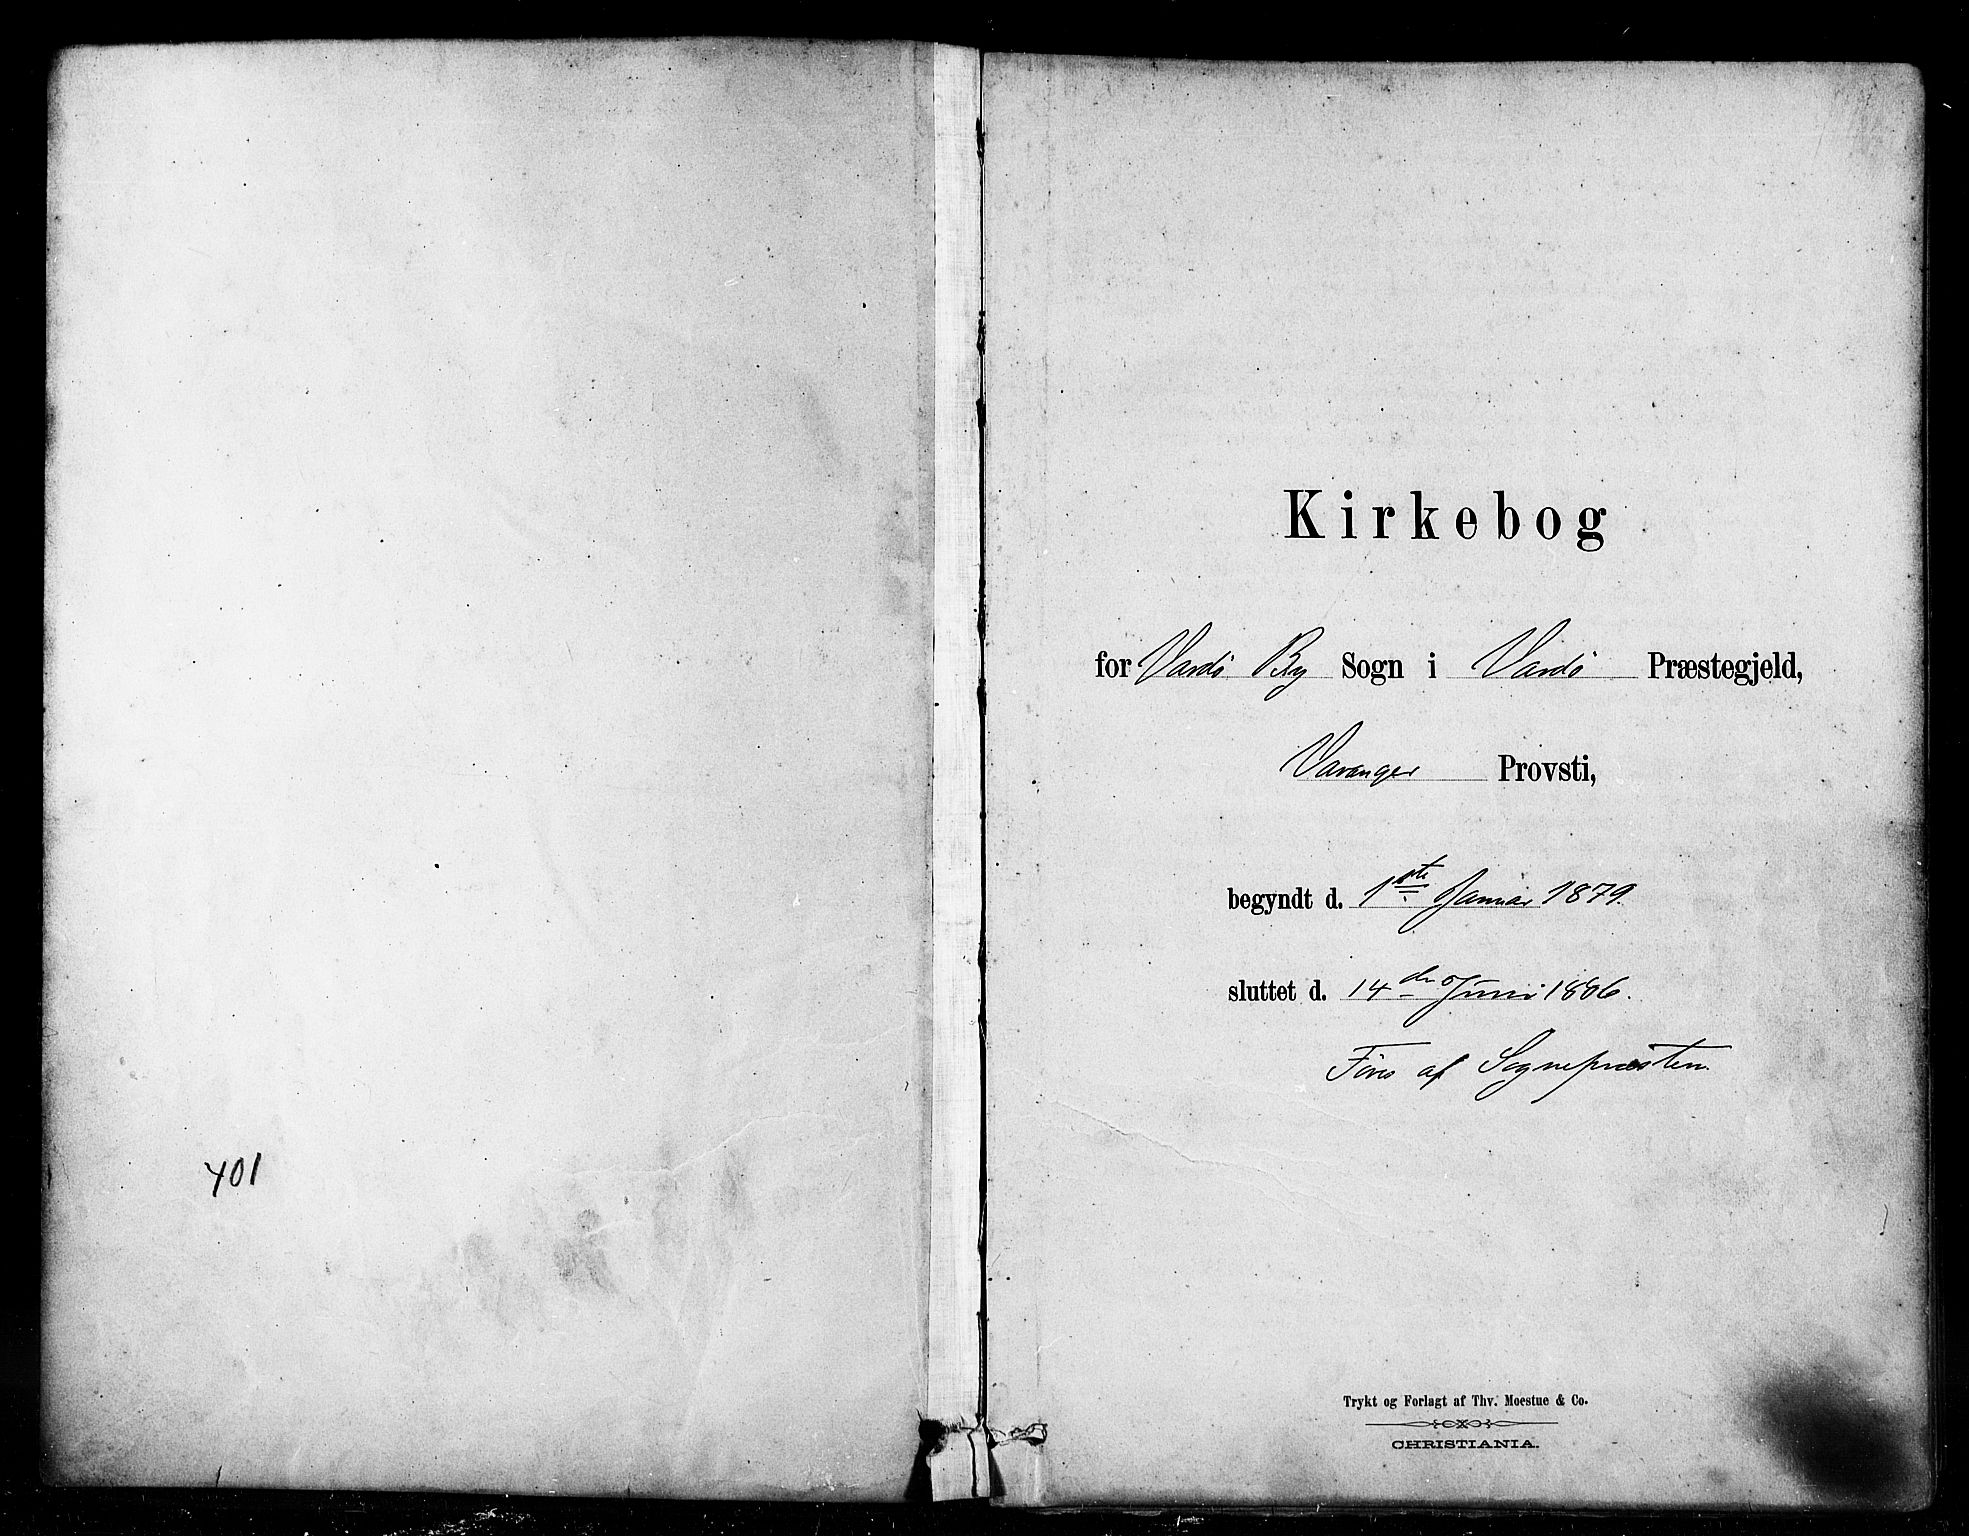 401
Kirkebog
for Vardö By Sogn i Vardö Præstegjeld,
Varanger Provsti,
begyndt d. 1ste Januar 1879.
sluttet d. 14de Juni 1886.
Föres af Sognepræsten
Trykt og Forlagt af Thv. Moestue & Co.
CHRISTIANIA.